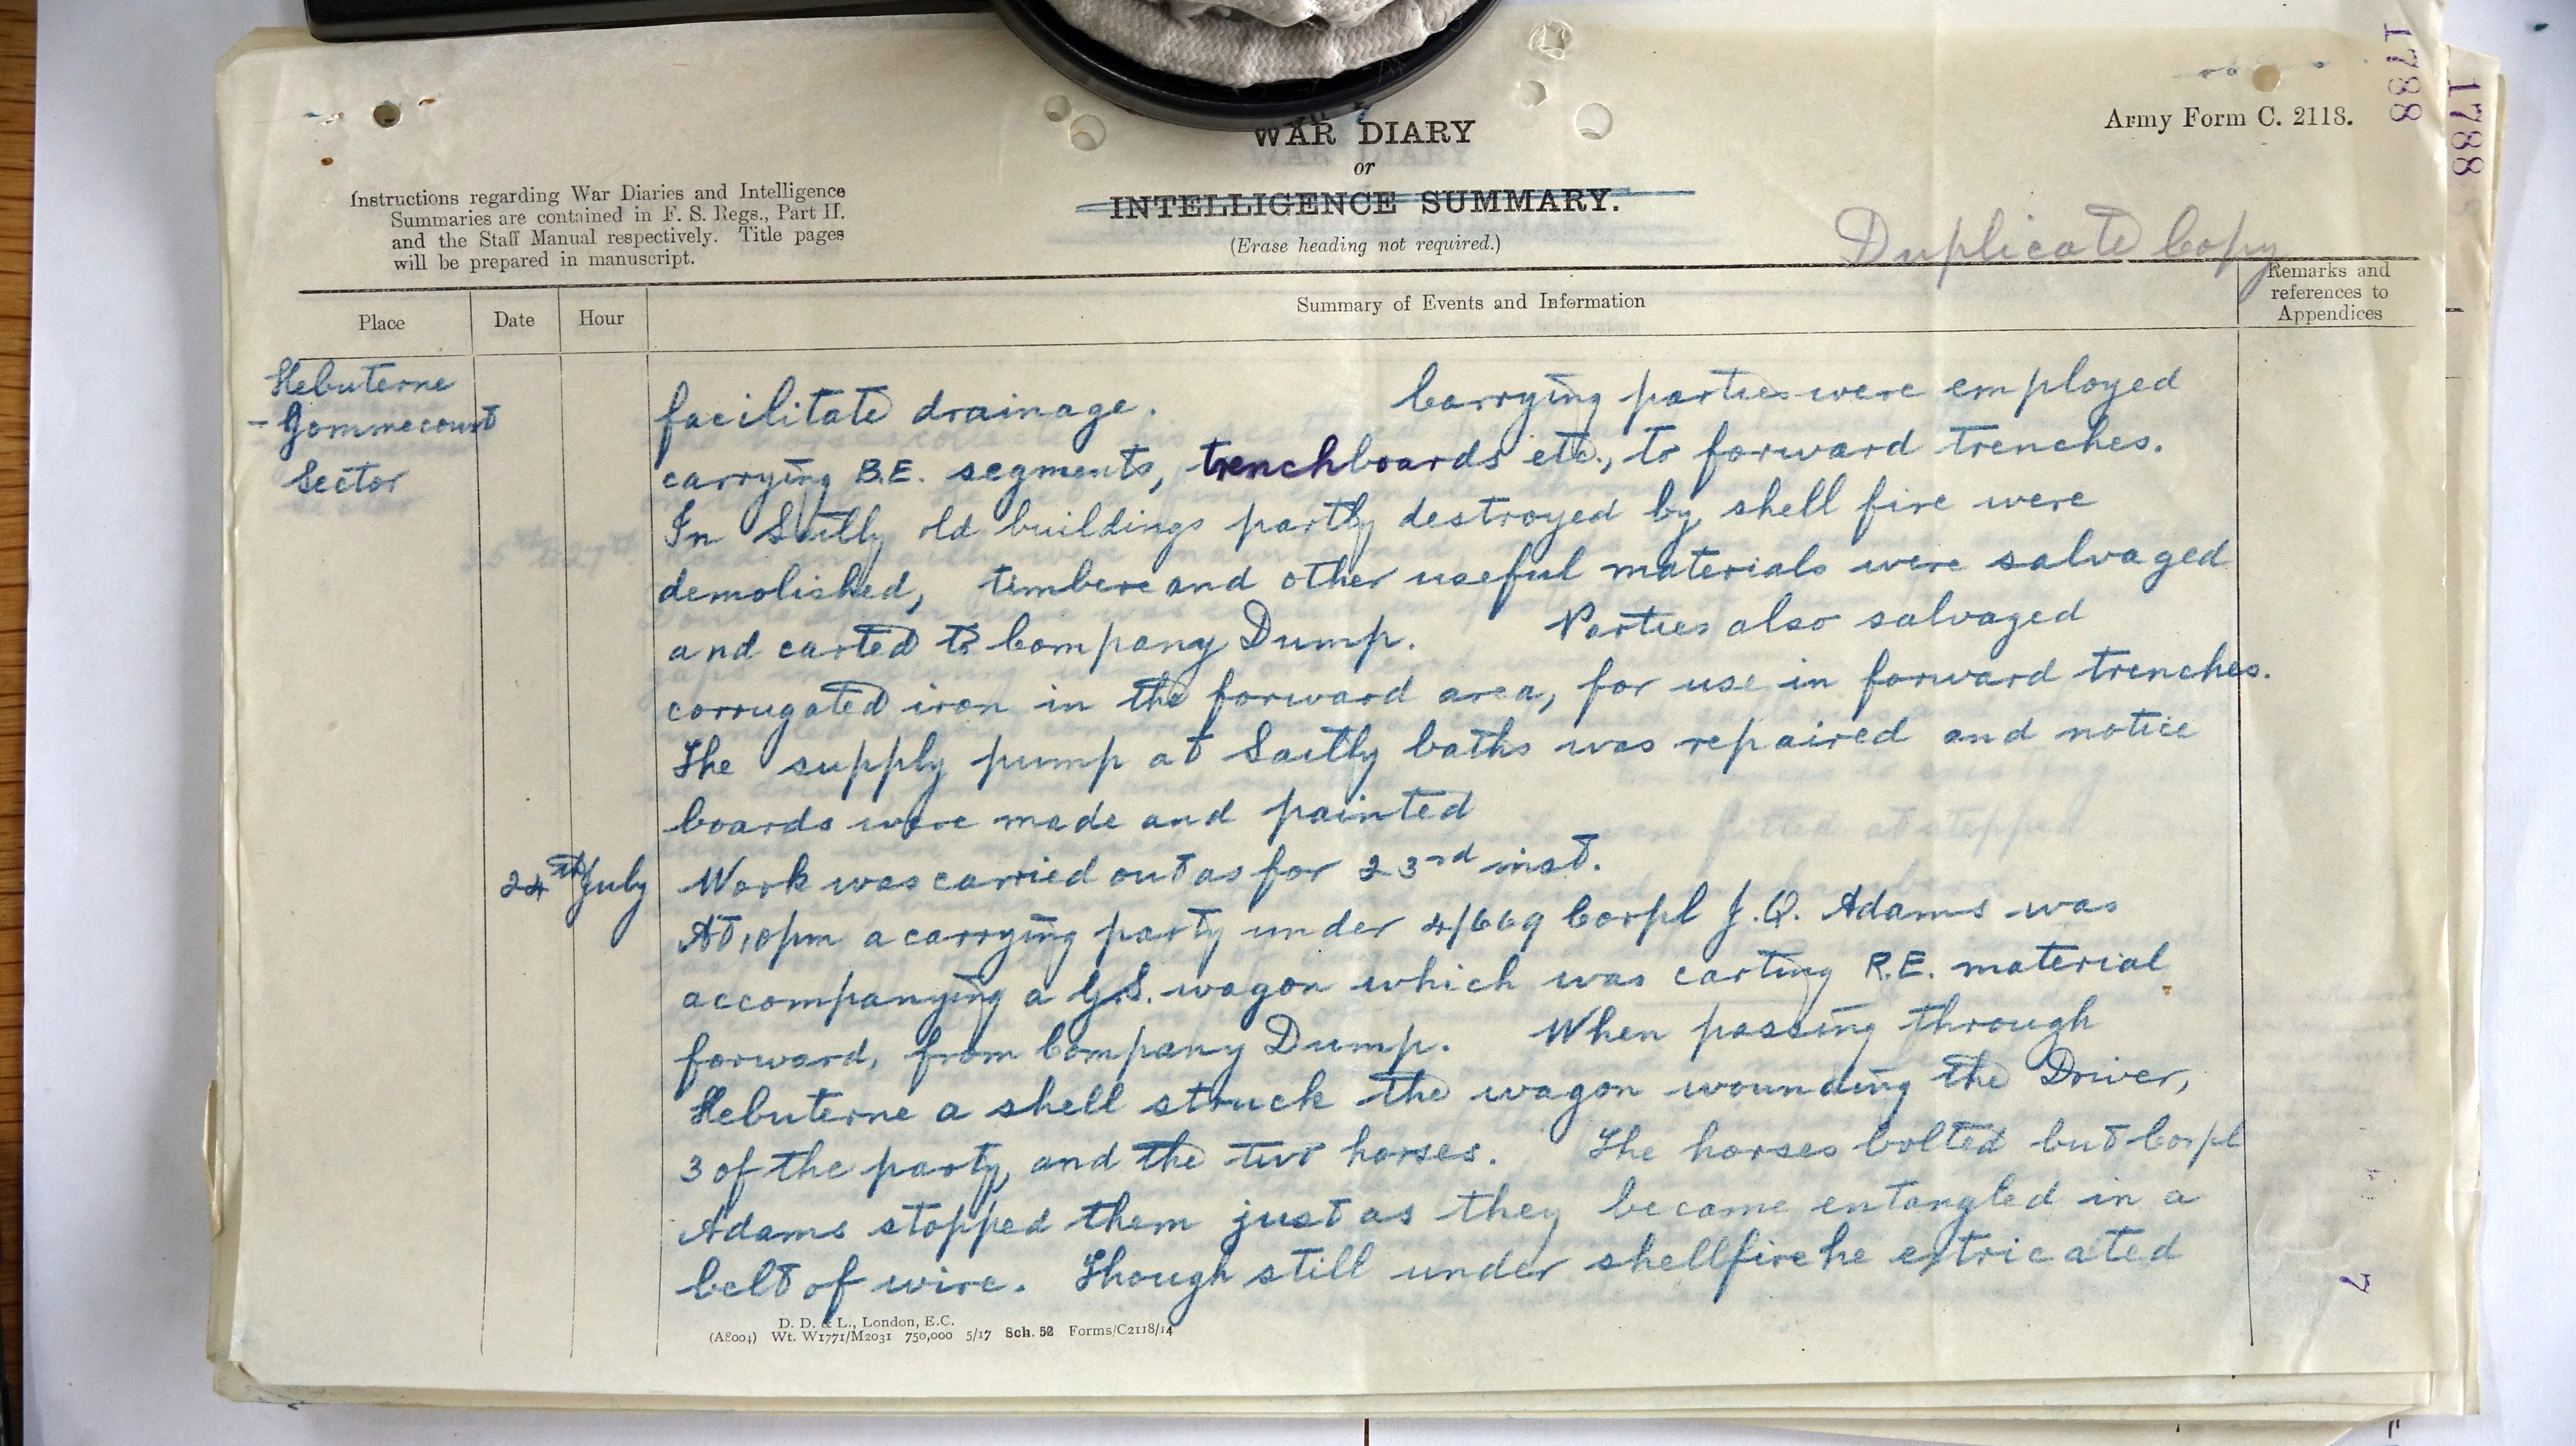 1788
1788
Army Form C. 2118.
WAR DIARY
or
INTELLIGENCE SUMMARY.
(Erase heading not required.)
Instructions regarding War Diaries and Intelligence
Summaries are contained in F. S. Regs., Part II.
and the Staff Manual respectively. Title pages
will be prepared in manuscript.
Duplicate Copy
Place
Date
Hour
Summary of Events and Information
Remarks and
references to
Appendices
Hebuterne
- Gommecourt
Sector
facilitate drainage. Carrying parties were employed
carrying B.E. segments, trenchboards etc., to forward trenches.
In Sailly old buildings partly destroyed by shell fire were
demolished, timbere and other useful materials were salvaged
and carted to Company Dump. Parties also salvaged
corrugated iron in the forward area, for use in forward trenches.
The supply pump at Sailly baths was repaired and notice
boards were made and painted
24th July Work was carried out as for 23rd inst.
At 10pm a carrying party under 4/669 Corpl J.Q. Adams was
accompanying a G.S. wagon which was carting R.E. material
forward, from Company Dump. When passing through
Hebuterne a shell struck the wagon wounding the Driver,
3 of the party, and the two horses. The horses bolted but Corpl
Adams stopped them just as they became entangled in a
belt of wire. Though still under shellfire he extricated
D. D. & L., London, E.C.
(A8004) Wt. W1771/M2031 750,000 5/17 Sch. 52 Forms/C2118/14
7